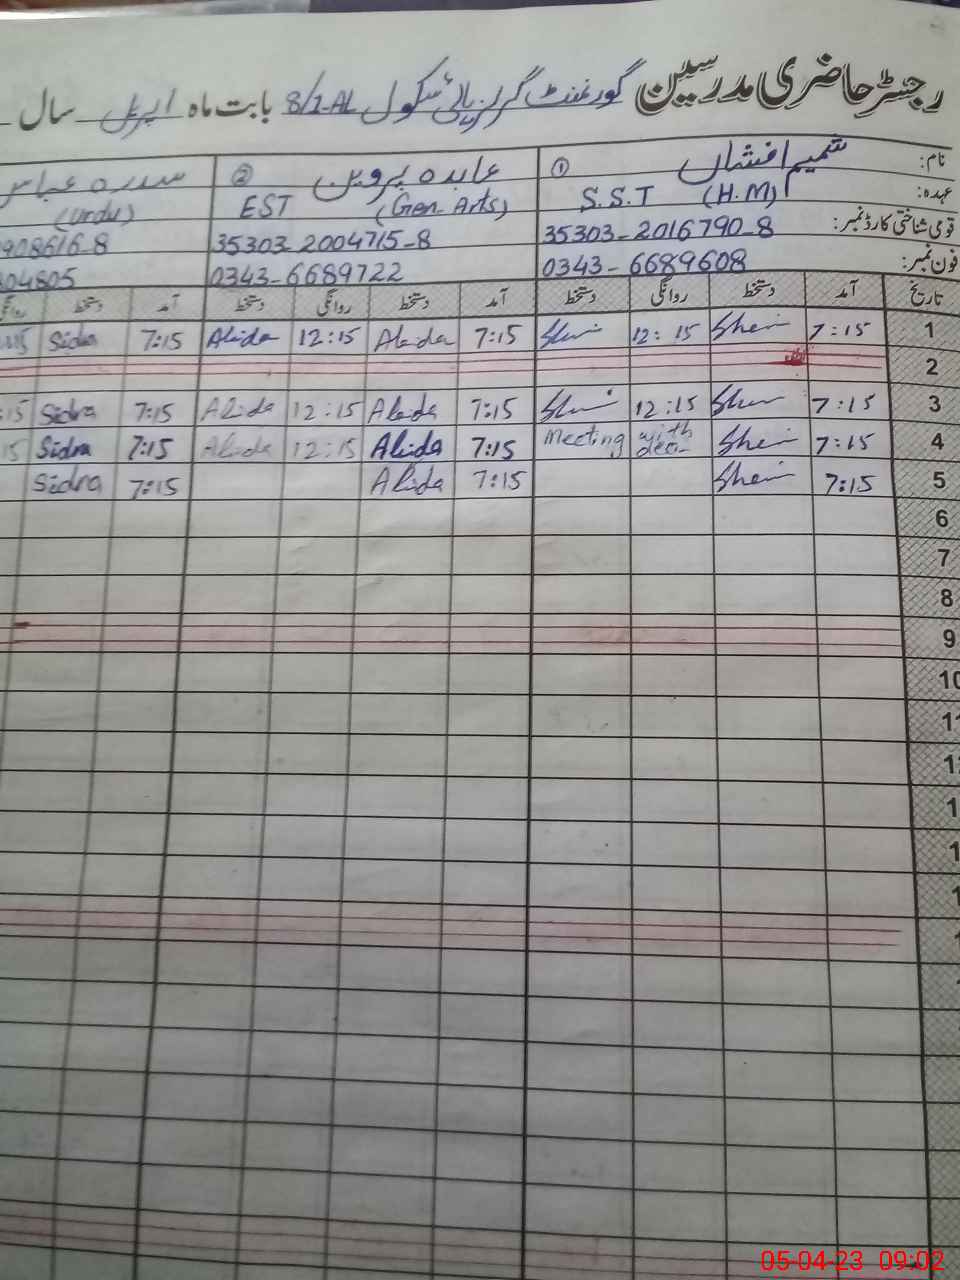 رجسٹر حاضری مدرسین گورنمنٹ گرلز ہائی سکول 8/1-AL بابت ماہ اپریل سال
نام: ① شمیم افشاں ② عابدہ پروین سدرہ عباس
عہدہ: S.S.T (H.M) EST (Gen. Arts) (Urdu)
قومی شناختی کارڈ نمبر: 35303-2016790-8 35303-2004715-8 908616-8
فون نمبر: 0343-6689608 0343-6689722 04805
تاریخ آمد دستخط روانگی دستخط آمد دستخط روانگی دستخط آمد دستخط
1 7:15 12:15 7:15 Abida 12:15 Abida 7:15 Sidra
2
3 7:15 12:15 7:15 Abida 12:15 Abida 7:15 Sidra :15
4 7:15 Meeting with 7:15 Abida 12:15 Abida 7:15 Sidra 15
5 7:15 7:15 Abida 7:15 Sidra
6
7
8
9
10
11
05-04-23 09:02